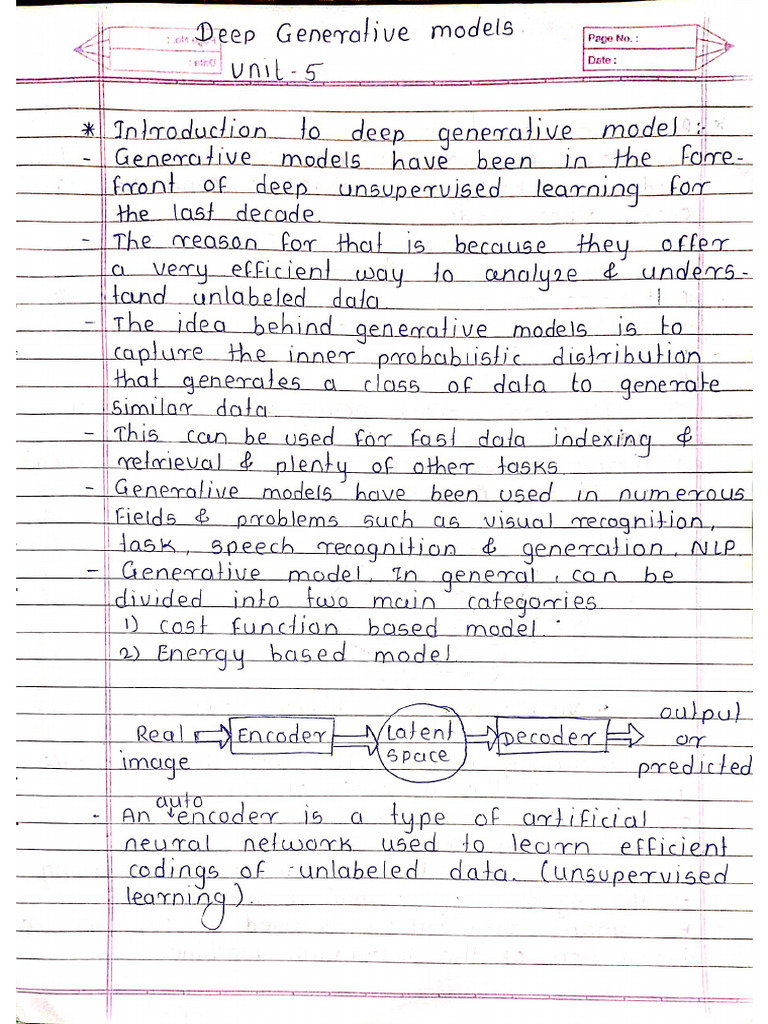 Deep Generative models.
Unit - 5
Page No. :
Date :
* Introduction to deep generative model :-
- Generative models have been in the fore-
front of deep unsupervised learning for
the last decade.
- The reason for that is because they offer
a very efficient way to analyze & unders-
tand unlabeled data
- The idea behind generative models is to
capture the inner probabilistic distribution
that generates a class of data to generate
similar data
- This can be used for fast data indexing &
retrieval & plenty of other tasks.
- Generative models have been used in numerous
fields & problems such as visual recognition,
task, speech recognition & generation, NLP.
- Generative model, In general, can be
divided into two main categorries.
1) cost function based model.
2) Energy based model
Real image
Encoder
Latent space
Decoder
output or predicted
- An auto encoder is a type of artificial
neural network used to learn efficient
codings of unlabeled data. (unsupervised
learning).